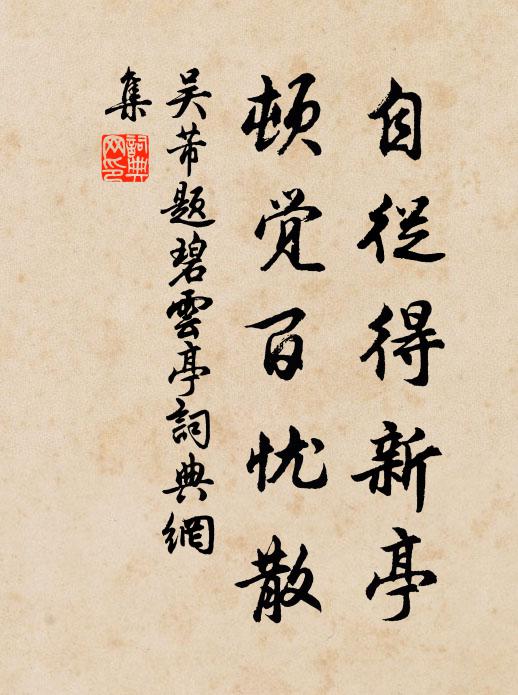 自從得新亭
顿觉百忧散
吴芾題碧雲亭詞典網
集
詞典
网印